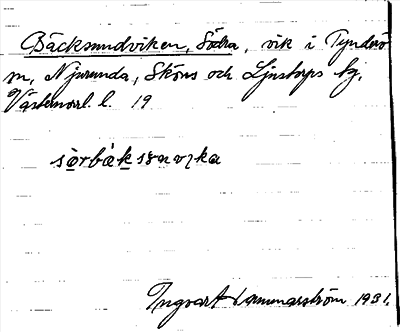 Bäcksundviken, Södra, vik i Tynderö
sn, Njurunda, Sköns och Ljustorps tg,
Västernorrl. l. 19
Ingvart Hammarström 1931.